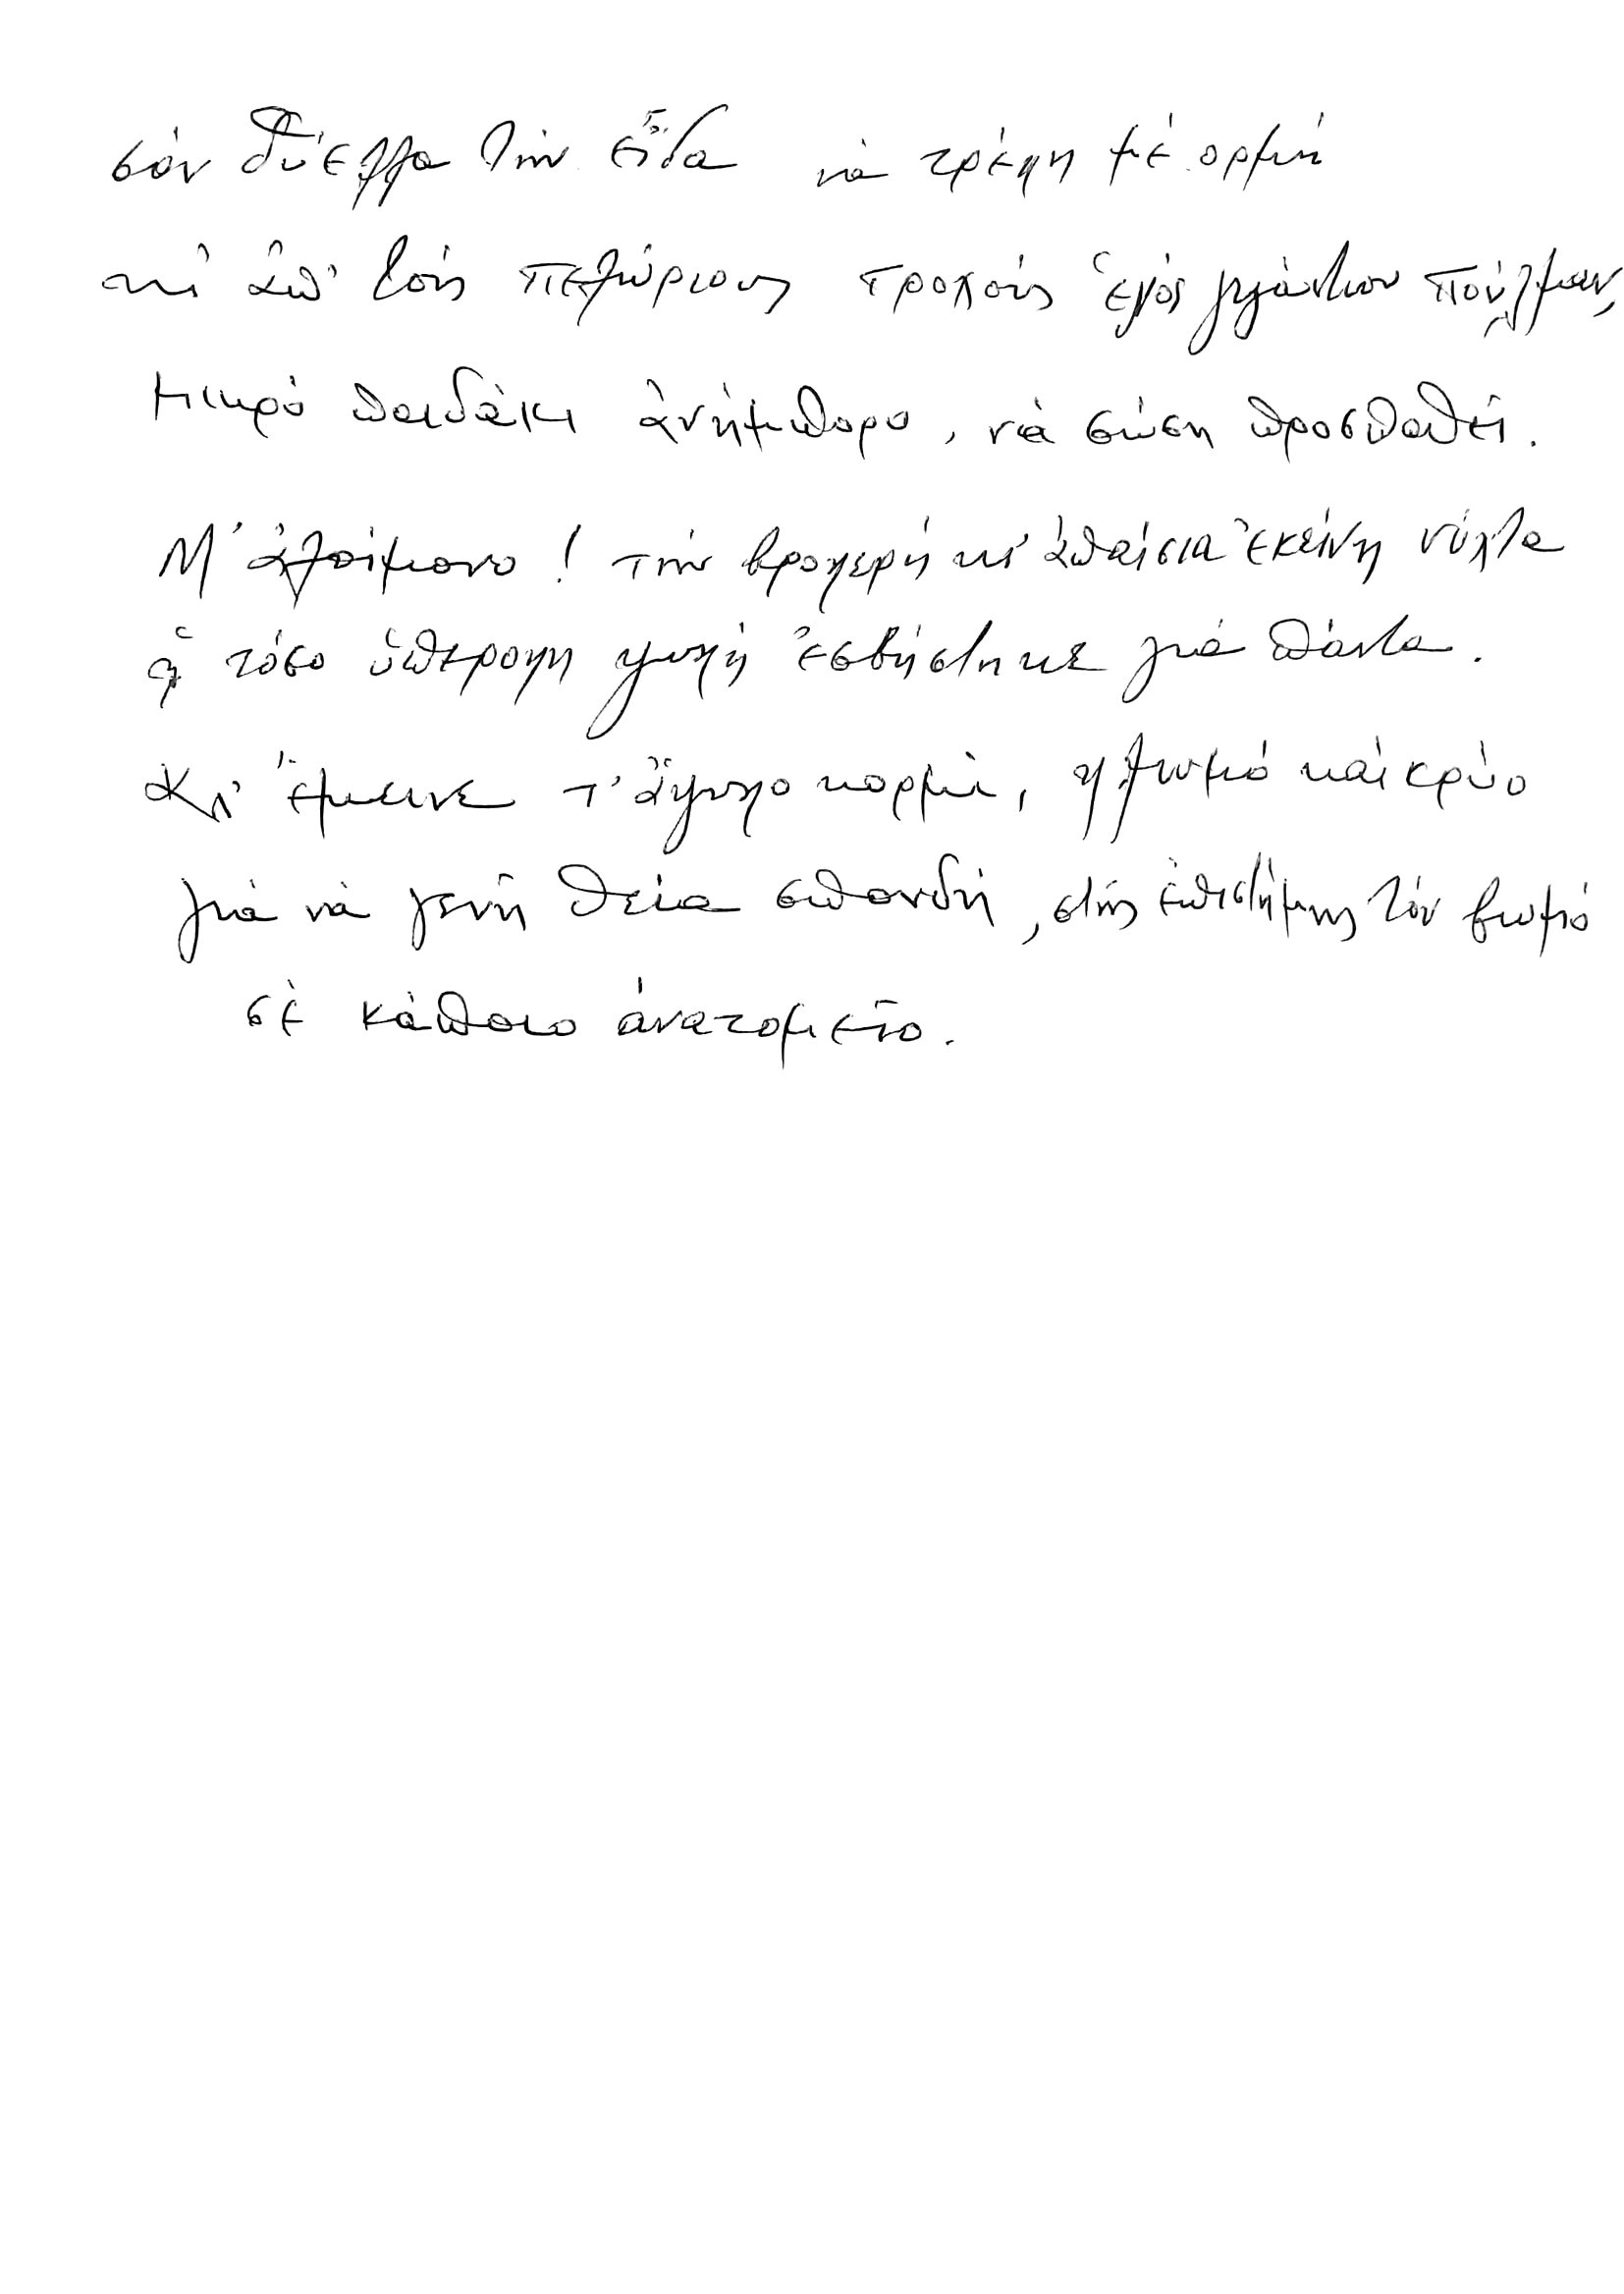 σάν θύελλα τήν εἶδα νά τρέχη μέ ορμή
κι' ἀπ' τούς πελώριους τροχούς ἑνός γιγάντιου πούλμαν,
μικρό παιδάκι ἀνήμπορο, νά σώση προσπαθεί.
Μ' ἀλοίμονο! τήν βροχερή κι' ἀπαίσια ἐκείνη νύχτα
ἡ τόσο ὑπέροχη ψυχή ἐσβήστηκε γιά πάντα.
Κι' ἔμεινε τ' ἄψυχο κορμί, χλωμό καί κρύο
γιά νά γενῆ θεία σπονδή, στῆς ἐπιστήμης τόν βωμό
σέ κάποιο ἀνατομεῖο.